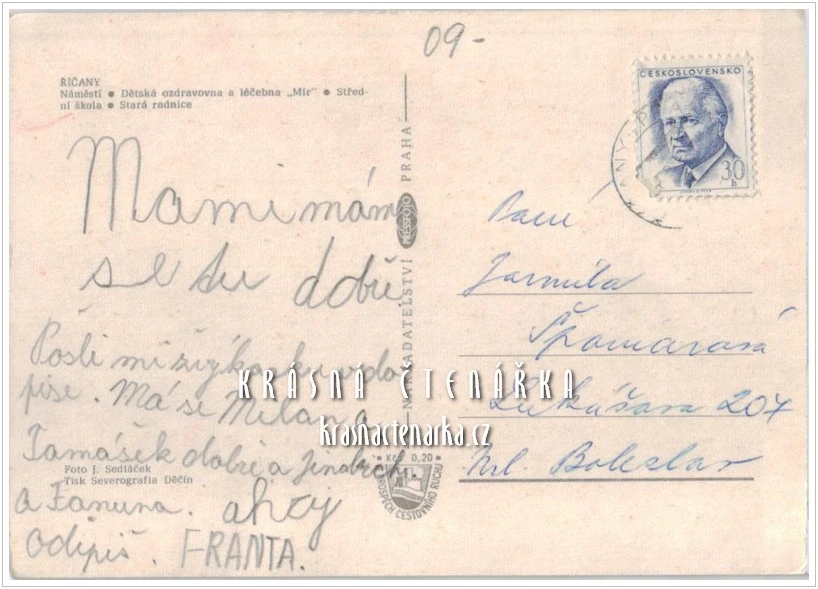 09-
ŘÍČANY
Náměstí ● Dětská ozdravovna a léčebna „Mír" ● Střed-
ní škola ● Stará radnice
Mami mám
se tu dobře
Pošli mi žvýka
piše. Má se Milan a
Tamášek dobře a Jindřich
a Fanuna. ahoj
Odipiš. FRANTA.
Foto J. Sedláček
Tisk Severografia Děčín
NAKLADATELSTVÍ PRESSFOTO PRAHA
Kčs 0,20
VE PROSPĚCH CESTOVNÍHO RUCHU
ČESKOSLOVENSKO
30 h
Paní
Jarmila
Lukášova 204
Ml. Boleslav
KRÁSNÁ ČTENÁŘKA
krasnactenarka.cz